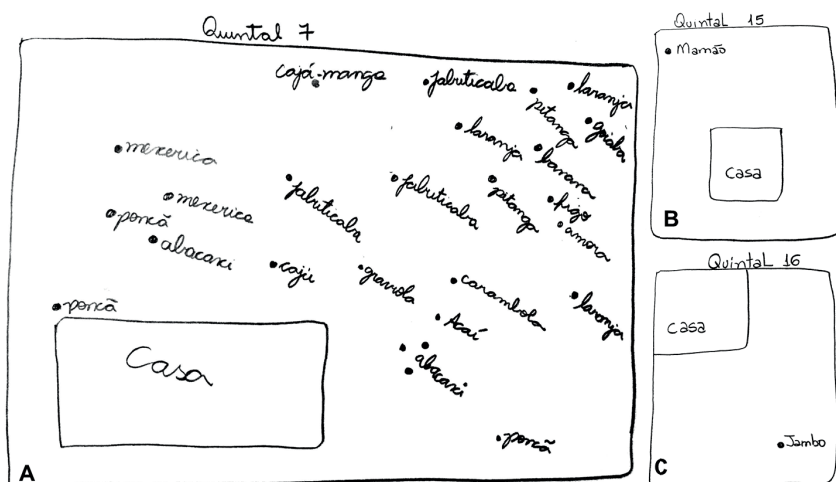 Quintal 7
cajá-manga
jabuticaba
pitanga
laranja
goiaba
laranja
banana
mexerica
jabuticaba
jabuticaba
pitanga
figo
amora
mexerica
poncã
abacaxi
cajú
graviola
carambola
laranja
poncã
Acaí
abacaxi
Casa
poncã
A
Quintal 15
Mamão
Casa
B
Quintal 16
Casa
Jambo
C